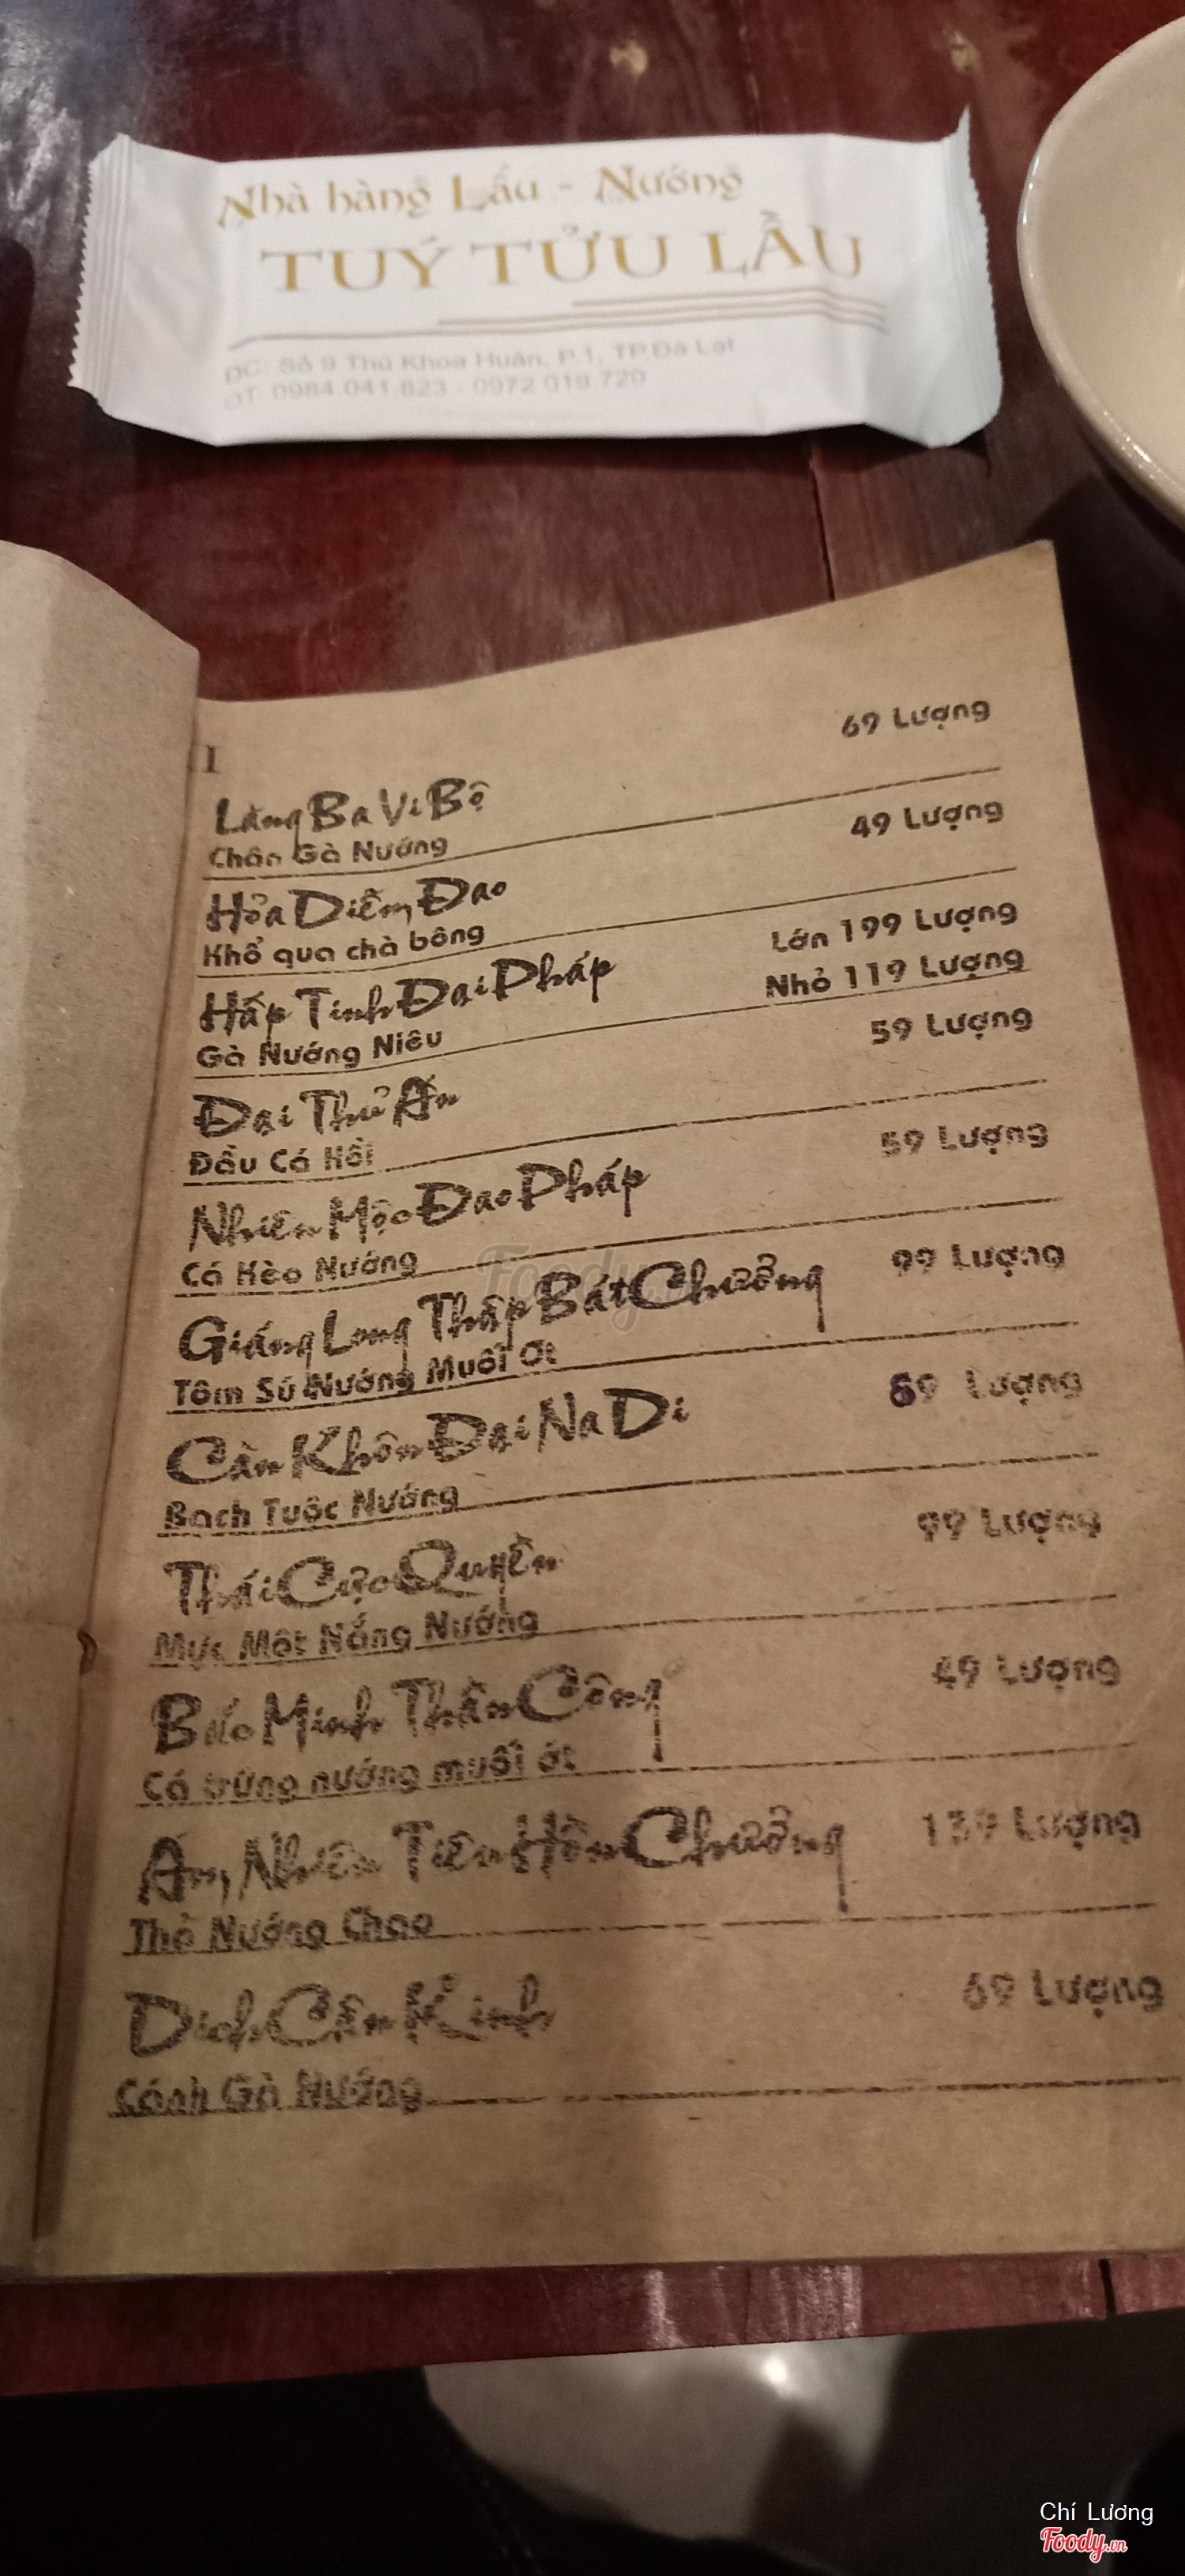 Nhà hàng Lẩu - Nướng
TUÝ TỬU LẦU
ĐC: Số 9 Thủ Khoa Huân, P.1, TP.Đà Lạt
ĐT: 0984.041.823 - 0972.019.720
I
69 Lượng
Lăng Ba Vi Bộ
Chân Gà Nướng
49 Lượng
Hỏa Diễm Đao
Khổ qua chà bông
Lớn 199 Lượng
Hấp Tinh Đại Pháp
Nhỏ 119 Lượng
Gà Nướng Niêu
59 Lượng
Đại Thủ Ấn
Đầu Cá Hồi
59 Lượng
Nhiên Mộc Đao Pháp
Cá Kèo Nướng
99 Lượng
Giáng Long Thập Bát Chưởng
Tôm Sú Nướng Muối Ớt
89 Lượng
Càn Khôn Đại Na Di
Bạch Tuộc Nướng
99 Lượng
Thái Cực Quyền
Mực Một Nắng Nướng
49 Lượng
Bắc Minh Thần Công
Cá trứng nướng muối ớt
139 Lượng
Ám Nhiên Tiêu Hồn Chưởng
Thỏ Nướng Chao
69 Lượng
Dịch Cân Kinh
Cánh Gà Nướng
Foody.vn
Chí Lương
Foody.vn